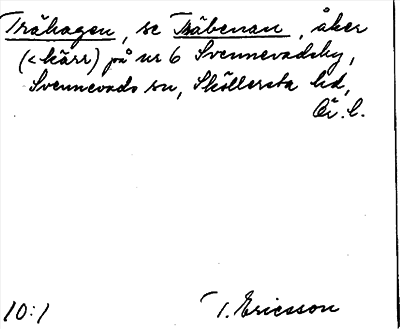 Trähagen, se Träbenan, åker
(< kärr) på nr 6 Svennevadsby,
Svennevads sn, Sköllersta hd,
Ör. l.
10:1 T. Ericsson